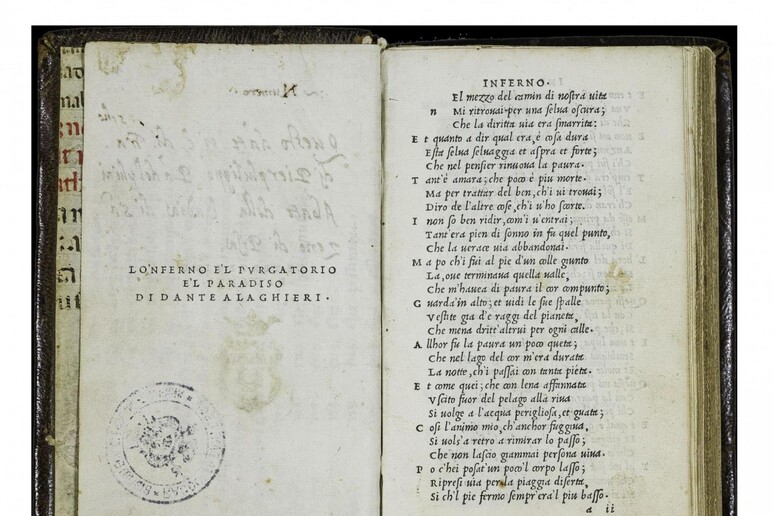 LO'NFERNO E'L PVRGATORIO
E'L PARADISO
DI DANTE ALAGHIERI.
INFERNO.
El mezzo del camin di nostra uita
n Mi ritrouai per una selua oscura;
Che la diritta uia era smarrita:
E t quanto a dir qual era, è cosa dura
Esta selua seluaggia et aspra et forte;
Che nel pensier rinuoua la paura.
T ant'è amara; che poco è piu morte.
Ma per trattar del ben, ch'i ui trouai;
Diro de l'altre cose, ch'i u'ho scorte.
I non so ben ridir, com'i u'entrai;
Tant'era pien di sonno in su quel punto,
Che la uerace uia abbandonai.
M a po ch'i fui al pie d'un colle giunto
La, oue terminaua quella ualle,
Che m'hauea di paura il cor compunto;
G uarda'in alto; et uidi le sue spalle
Vestite gia de raggi del pianeta,
Che mena dritt'altrui per ogni calle.
A llhor fu la paura un poco queta;
Che nel lago del cor m'era durata
La notte, ch'i passai con tanta pieta.
E t come quei; che con lena affannata
Vscito fuor del pelago alla riua
Si uolge a l'acqua perigliosa, et guata;
C osi l'animo mio, ch'anchor fuggiua,
Si uols'a retro a rimirar lo passo;
Che non lascio giammai persona uiua.
P o c'hei posat'un poco'l corpo lasso;
Ripresi uia per la piaggia diserta,
Si ch'l pie fermo sempr'era'l piu basso.
a ii